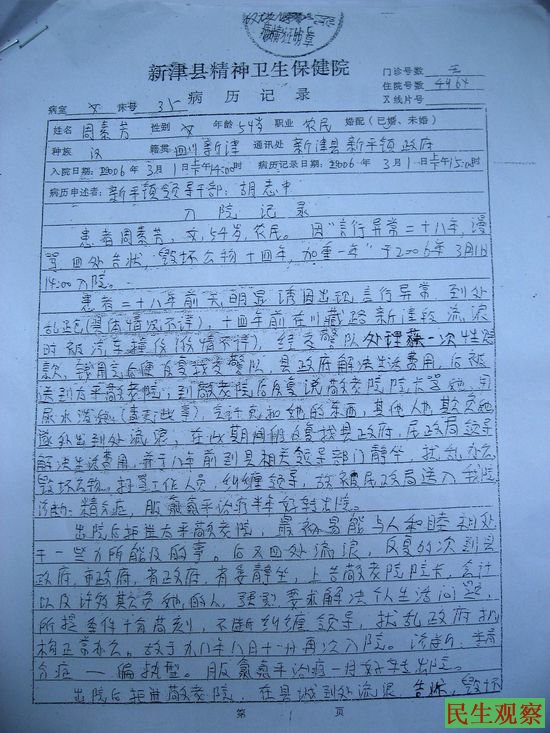 新津县精神卫生保健院
门诊号数 无
病历记录
住院号数 4464
X线片号
病室 女 床号 35
姓名 周素芳 性别 女 年龄 54岁 职业 农民 婚配(已婚、未婚)
种族 汉 籍贯 四川新津 通讯处 新津县新平镇政府
入院日期:2006年3月1日午14:00时 病历记录日期:2006年3月1日午15:00时
病历申述者:新平镇领导干部:胡志中
入院记录
患者周素芳,女,54岁,农民。因"言行异常二十八年,漫
骂、四处告状,毁坏公物十四年,加重一年"于2006年3月1日
14:00入院。
患者二十八年前无明显诱因出现言行异常,到处
乱跑(具体情况不详),十四年前在川藏路新津段流浪
时被汽车撞伤(伤情不详),经交警队处理 一次性赔
款,钱用完后便反复找交警队,县政府解决生活费用,后被
送到太平敬老院;到敬老院后反复说敬老院院长骂她,用
尿水泼她(查无此事),会计克扣她的东西,其他人也欺负她
遂外出到处流浪,在此期间反复找县政府,民政局领导
解决生活费用,并于八年前到县相关领导部门静坐,扰乱办公
毁坏公物,打骂工作人员,纠缠领导,故被民政局送入我院
诊断:精分症,服氯氮平治疗半年好转出院。
出院后拒进太平敬老院,最初尚能与人和睦相处
干一些力所能及的事。后又四处流浪,反复多次到县
政府,市政府,省政府,省委静坐,上告敬老院院长,会计
以及许多欺负她的人,强烈要求解决个人生活问题,
所提条件十分苛刻,不断纠缠领导,扰乱政府机
构正常办公。故于九八年八月十一日再次入院。诊断:精神
分症—偏执型。服氯氮平治疗一月好转出院。
出院后拒进敬老院,在县城到处流浪,告状,毁坏
第 1 页
民生观察